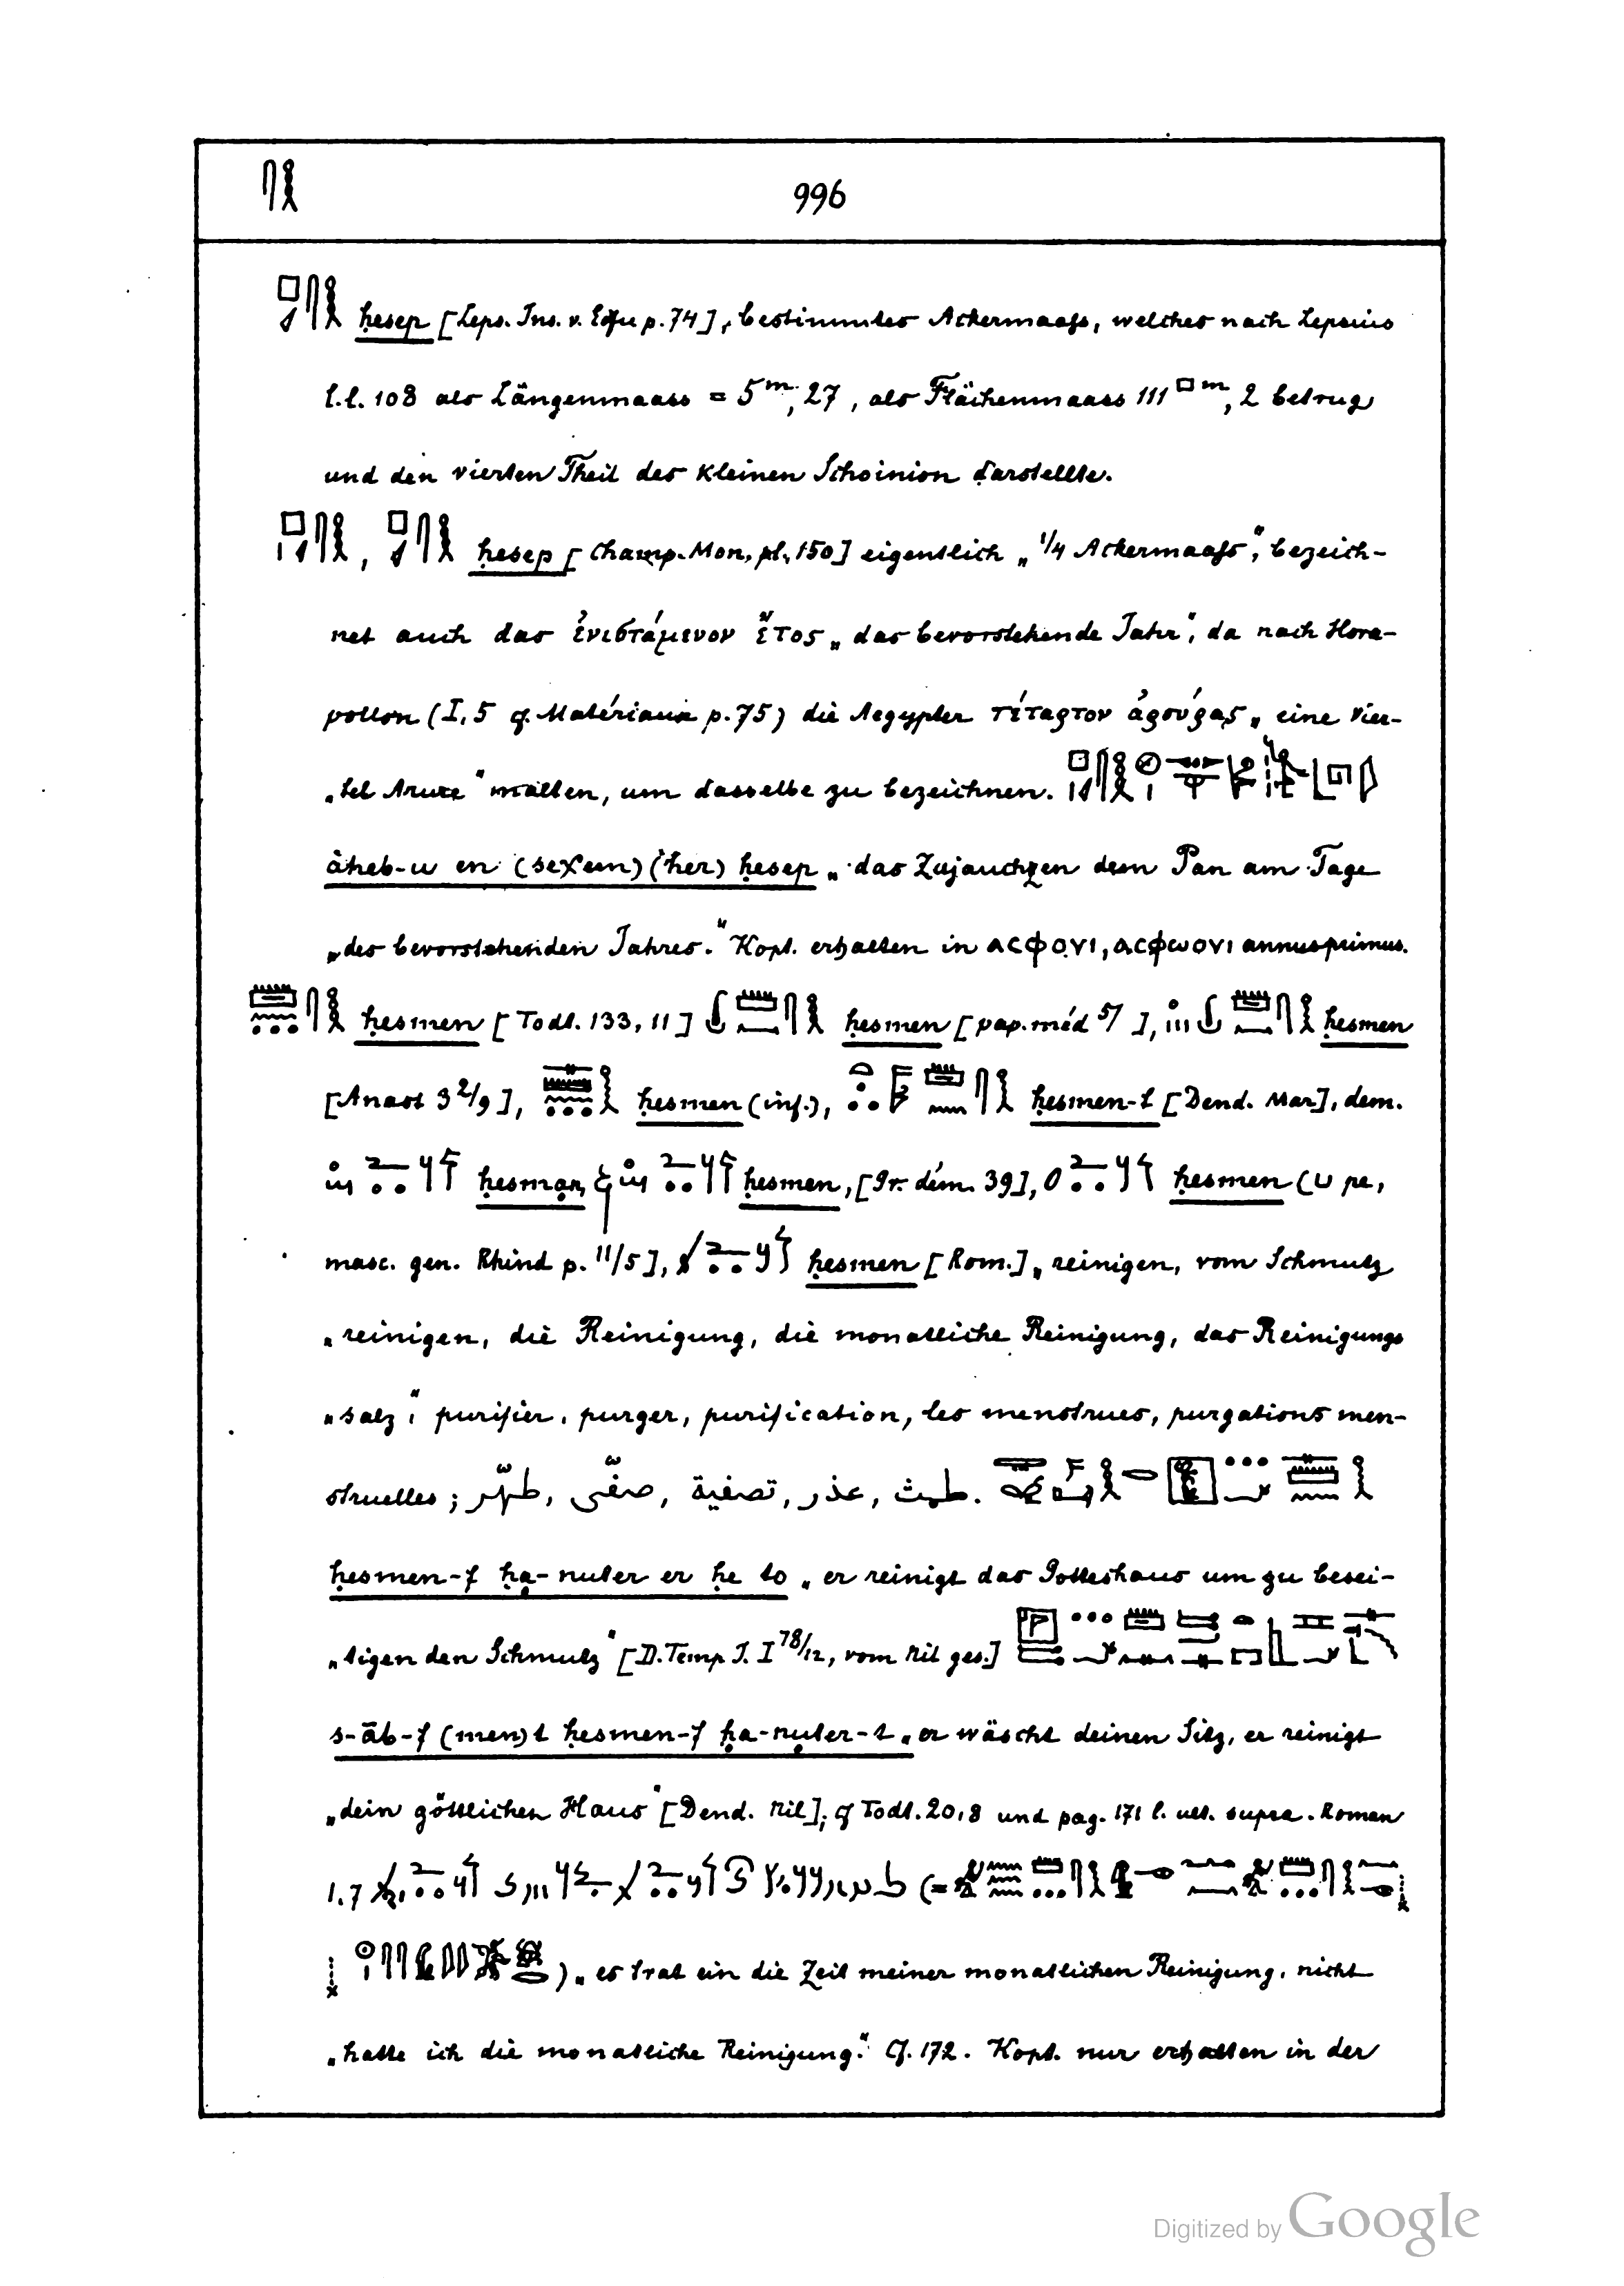 996
ḥesep [Leps. Ins. v. Edfu p. 74], bestimmtes Ackermaaſs, welches nach Lepsius
l. l. 108 als Längenmaass = 5ᵐ, 27, als Flächenmaass 111 □ᵐ, 2 betrug
und den vierten Theil des kleinen Schoinion darstellte.
, ḥesep [Champ. Mon. pl. 150] eigentlich „1/4 Ackermaaſs“, bezeich-
net auch das ἐνιστάμενον ἔτος „das bevorstehende Jahr“, da nach Hora-
pollon (I, 5 cf. Matériaux p. 75) die Aegypter τέταρτον ἀρούρας „eine Vier-
„tel Arure“ malten, um dasselbe zu bezeichnen.
àheb-u en (seχem) (her) ḥesep „das Zujauchzen dem Pan am Tage
„des bevorstehenden Jahres.“ Kopt. erhalten in ⲁⲥⲫⲟⲩⲓ, ⲁⲥⲫⲱⲟⲩⲓ annus primus.
ḥesmen [Todt. 133, 11] ḥesmen [pap. méd 5/ ], ḥesmen
[Anast 3 2/9], ḥesmen (inf.), ḥesmen-t [Dend. Mar], dem.
ḥesmạn, ḥesmen, [Gr. dém. 39], ḥesmen (U pe,
masc. gen. Rhind p. 11/5], ḥesmen [Rom.] „reinigen, vom Schmutz
„reinigen, die Reinigung, die monatliche Reinigung, das Reinigungs
„salz“, purifier, purger, purification, les menstrues, purgations men-
struelles; طهّر, صفّى, تصفية, عذر, طمث.
ḥesmen-f ḥạ-nuter er ḥe to „er reinigt das Gotteshaus um zu besei-
„tigen den Schmutz“ [D. Temp I. I 78/12, vom Nil ges.]
s-āb-f (men)t ḥesmen-f ḥạ-nuter-t „er wäscht deinen Sitz, er reinigt
„dein göttliches Haus“ [Dend. Nil]; cf Todt. 20,8 und pag. 171 l. ult. supra. Roman
1.7 (=
) „es trat ein die Zeit meiner monatlichen Reinigung, nicht
„hatte ich die monatliche Reinigung.“ Cf. 172. Kopt. nur erhalten in der
Digitized by Google